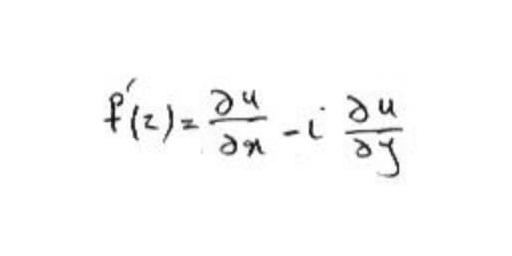 f'(z) = ∂u/∂x - i ∂u/∂y